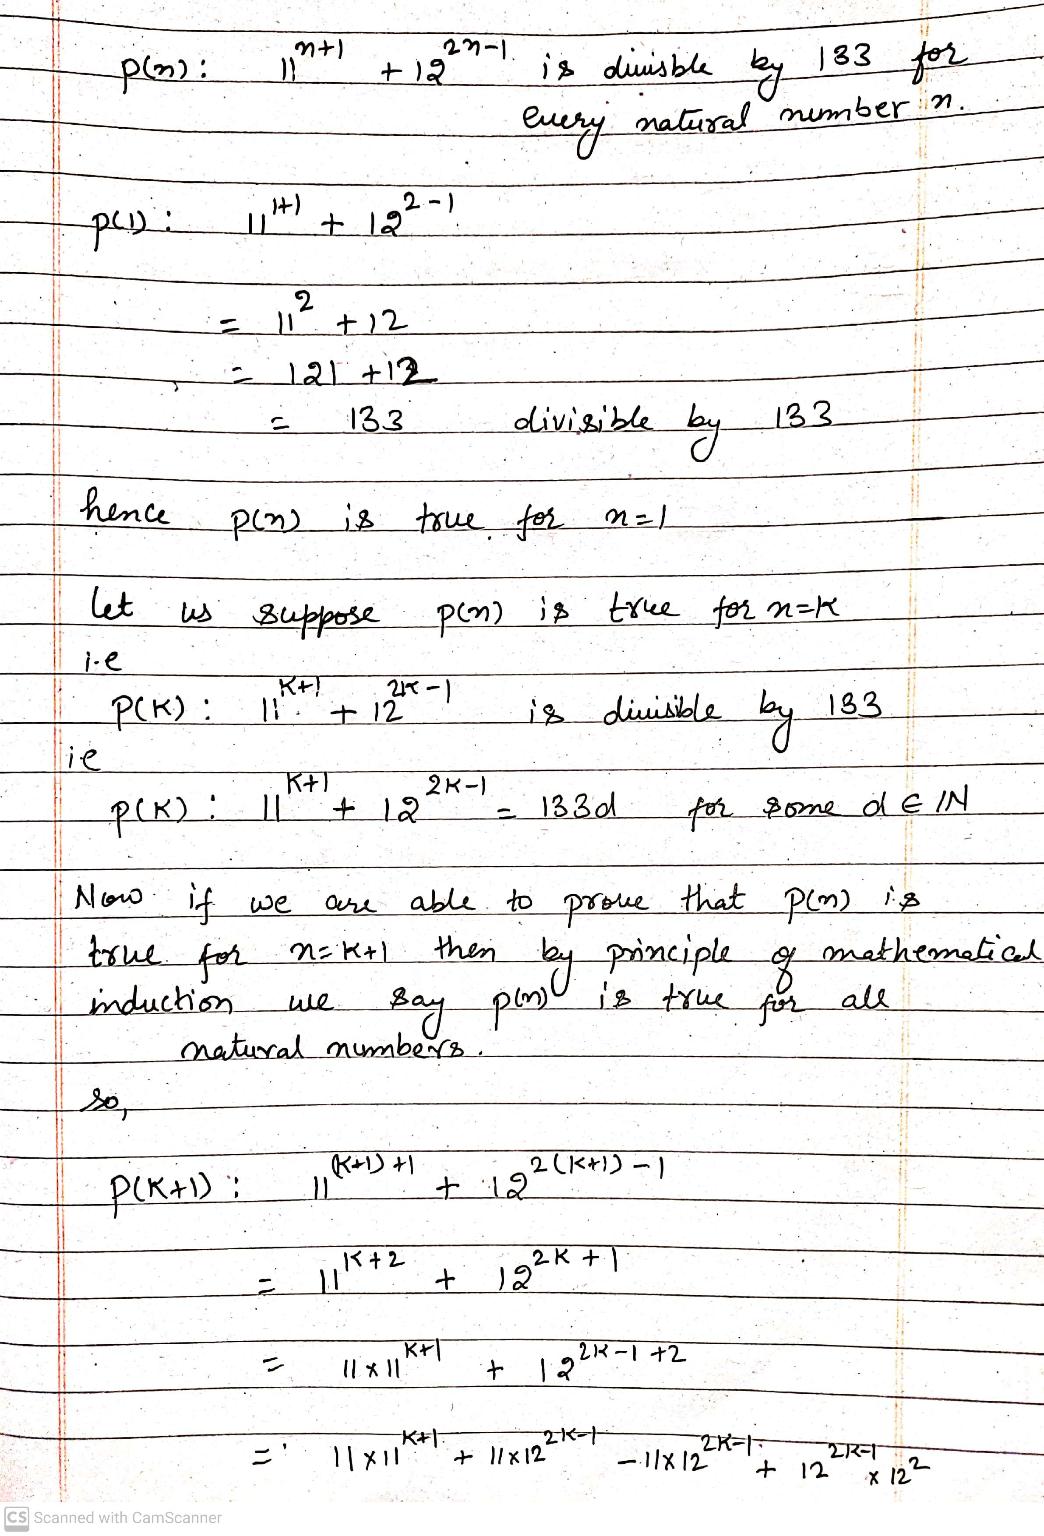 p(n): 11^{n+1} + 12^{2n-1} is divisble by 133 for
every natural number n.
p(1): 11^{1+1} + 12^{2-1}
= 11^2 + 12
= 121 + 12
= 133 divisible by 133
hence p(n) is true for n=1
let us suppose p(n) is true for n=K
i.e
P(K): 11^{K+1} + 12^{2K-1} is divisible by 133
ie
p(K): 11^{K+1} + 12^{2K-1} = 133d for some d ∈ IN
Now if we are able to prove that p(n) is
true for n=K+1 then by principle of mathematical
induction we say p(n) is true for all
natural numbers.
so,
P(K+1): 11^{(K+1)+1} + 12^{2(K+1)-1}
= 11^{K+2} + 12^{2K+1}
= 11×11^{K+1} + 12^{2K-1+2}
= 11×11^{K+1} + 11×12^{2K-1} - 11×12^{2K-1} + 12^{2K-1} × 12^2
CS Scanned with CamScanner